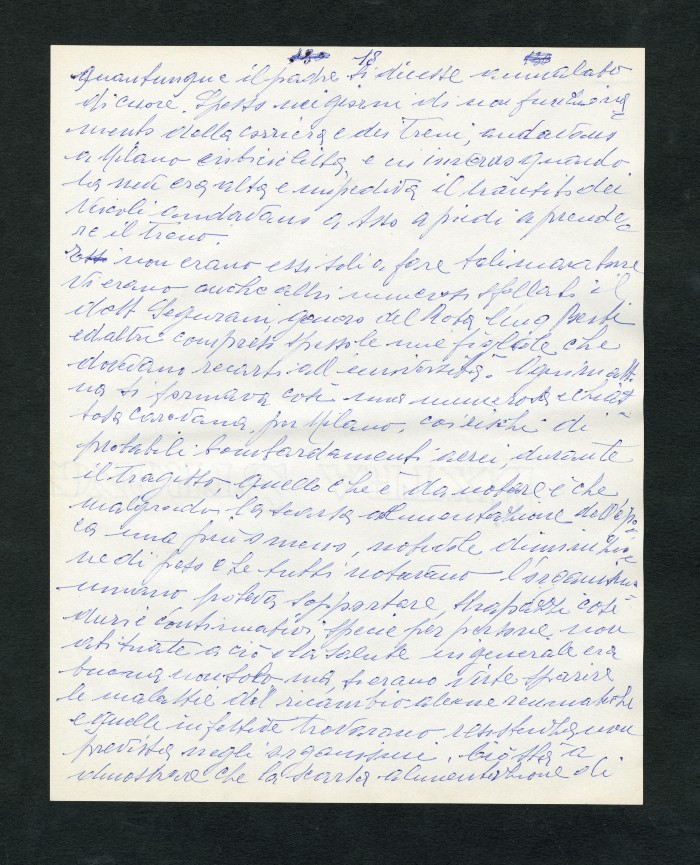 18
Quantunque il padre si dicesse ammalato
di cuore. Spesso nei giorni di non funziona
mento della corriera e dei treni, andavano
a Milano in bicicletta, e in inverno quando
la neve era alta e impediva il transito dei
veicoli andavano a Asso a piedi a prende-
re il treno.
non erano essi soli a fare tali
vi erano anche altri numerosi sfollati il
dott. Segurani, genero del Rosa, l'ing.
ed altri compreso spesso le mie figliole che
dovevano recarsi all'università. Ogni matti
na si formava così una numerosa e
carovana, per Milano, coi rischi di
probabili bombardamenti aerei, durante
il tragitto. Quello che è da notare è che
malgrado la scarsa alimentazione dell'epo
ca una più o meno, notevole diminuzio
ne di peso che tutti notavano l'organismo
umano poteva sopportare, strapazzi così
duri e continuativi, specie per persone non
abituate a ciò e la salute in generale era
buona non solo ma, si erano viste sparire
le malattie del ricambio alcune reumatiche
e quelle infettive trovavano resistenza non
prevista negli organismi. Ciò sta a
dimostrare che la scarsa alimentazione di